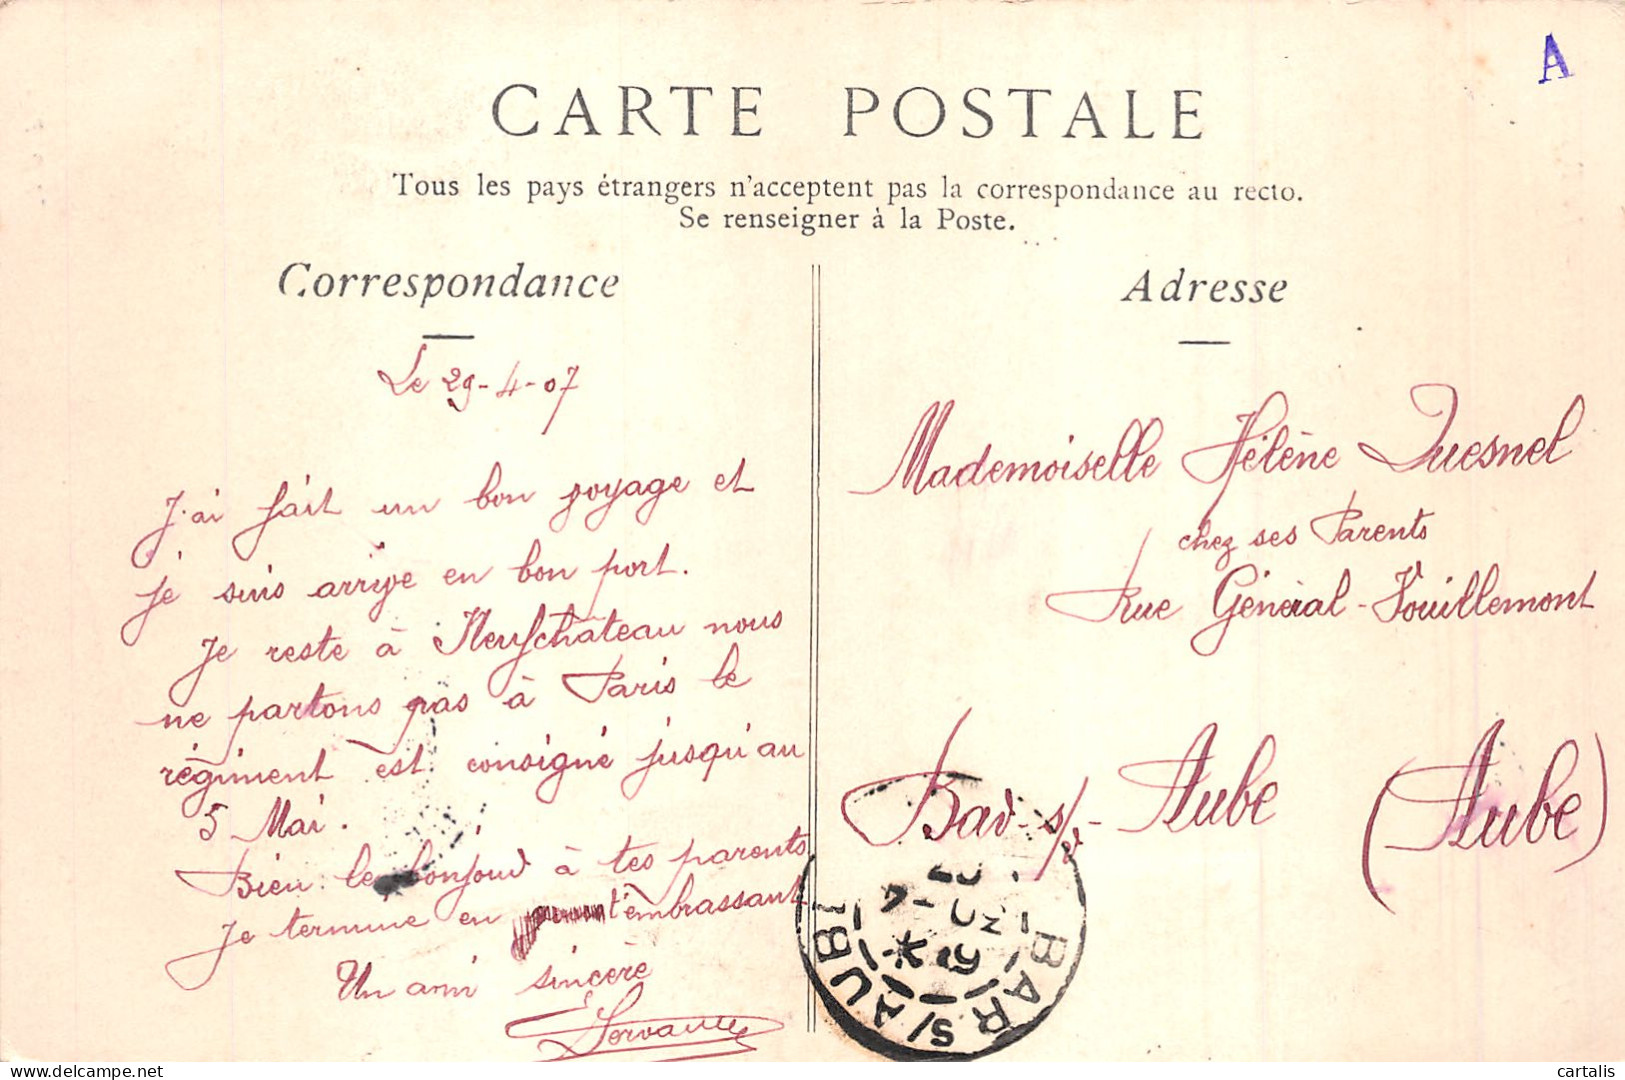 A
CARTE POSTALE
Tous les pays étrangers n'acceptent pas la correspondance au recto.
Se renseigner à la Poste.
Correspondance
Le 29-4-07
J'ai fait un bon voyage et
je suis arrive en bon port.
Je reste à Neufchâteau nous
ne partons pas à Paris le
régiment est consigné jusqu'au
5 Mai.
Bien le bonjour à tes parents
Je termine en t'embrassant
Un ami sincère
Adresse
Mademoiselle Hélène Quesnel
chez ses Parents
Rue Général-Vouillemont
Bar-s/r-Aube (Aube)
BAR S/ AUBE
cartalis
delcampe.net